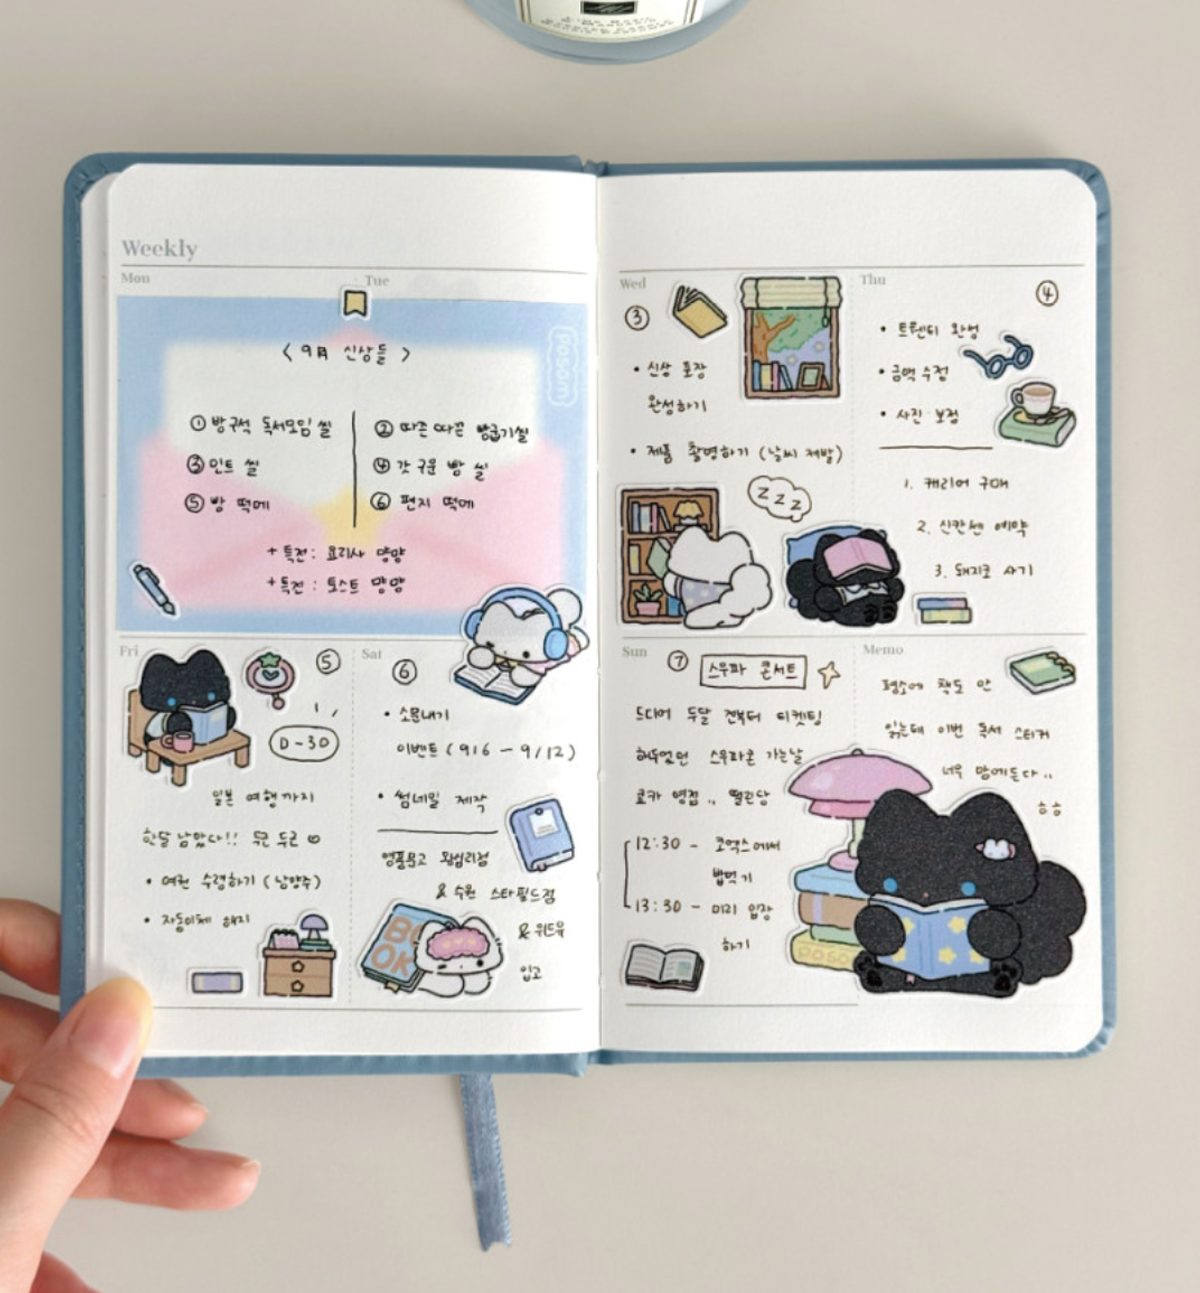 Weekly
Mon
Tue
< 9月 신상들 >
posom
① 방구석 독서모임 씰
② 따끈따끈 빵굽기씰
③ 민트 씰
④ 갓 구운 빵 씰
⑤ 빵 떡메
⑥ 편지 떡메
+ 특전 : 요리사 먕먕
+ 특전 : 토스트 먕먕
Fri
⑤
D-30
일본 여행까지
한달 남았다!! 두근 두근
• 여권 수령하기 (남양주)
• 자동이체 해지
Sat
⑥
• 소문내기
이벤트 (9/6 - 9/12)
• 썸네일 제작
영풍문고 왕십리점
& 수원 스타필드점
& 위드유
입고
BOOK
Wed
③
• 신상 포장
완성하기
• 제품 촬영하기 (날씨 제발)
z z z
Thu
④
• 트렌디 완성
• 금액 수정
• 사진 보정
1. 캐리어 구매
2. 신칸센 예약
3. 돼지코 사기
Sun
⑦
스우파 콘서트
드디어 두달 전부터 티켓팅
해두었던 스우파콘 가는날
료카 영접.. 떨린당
12:30 - 코엑스에서
밥먹기
13:30 - 미리 입장
하기
Memo
평소에 책도 안
읽는데 이번 독서 스티커
너무 맘에든다..
ㅎㅎ
posom